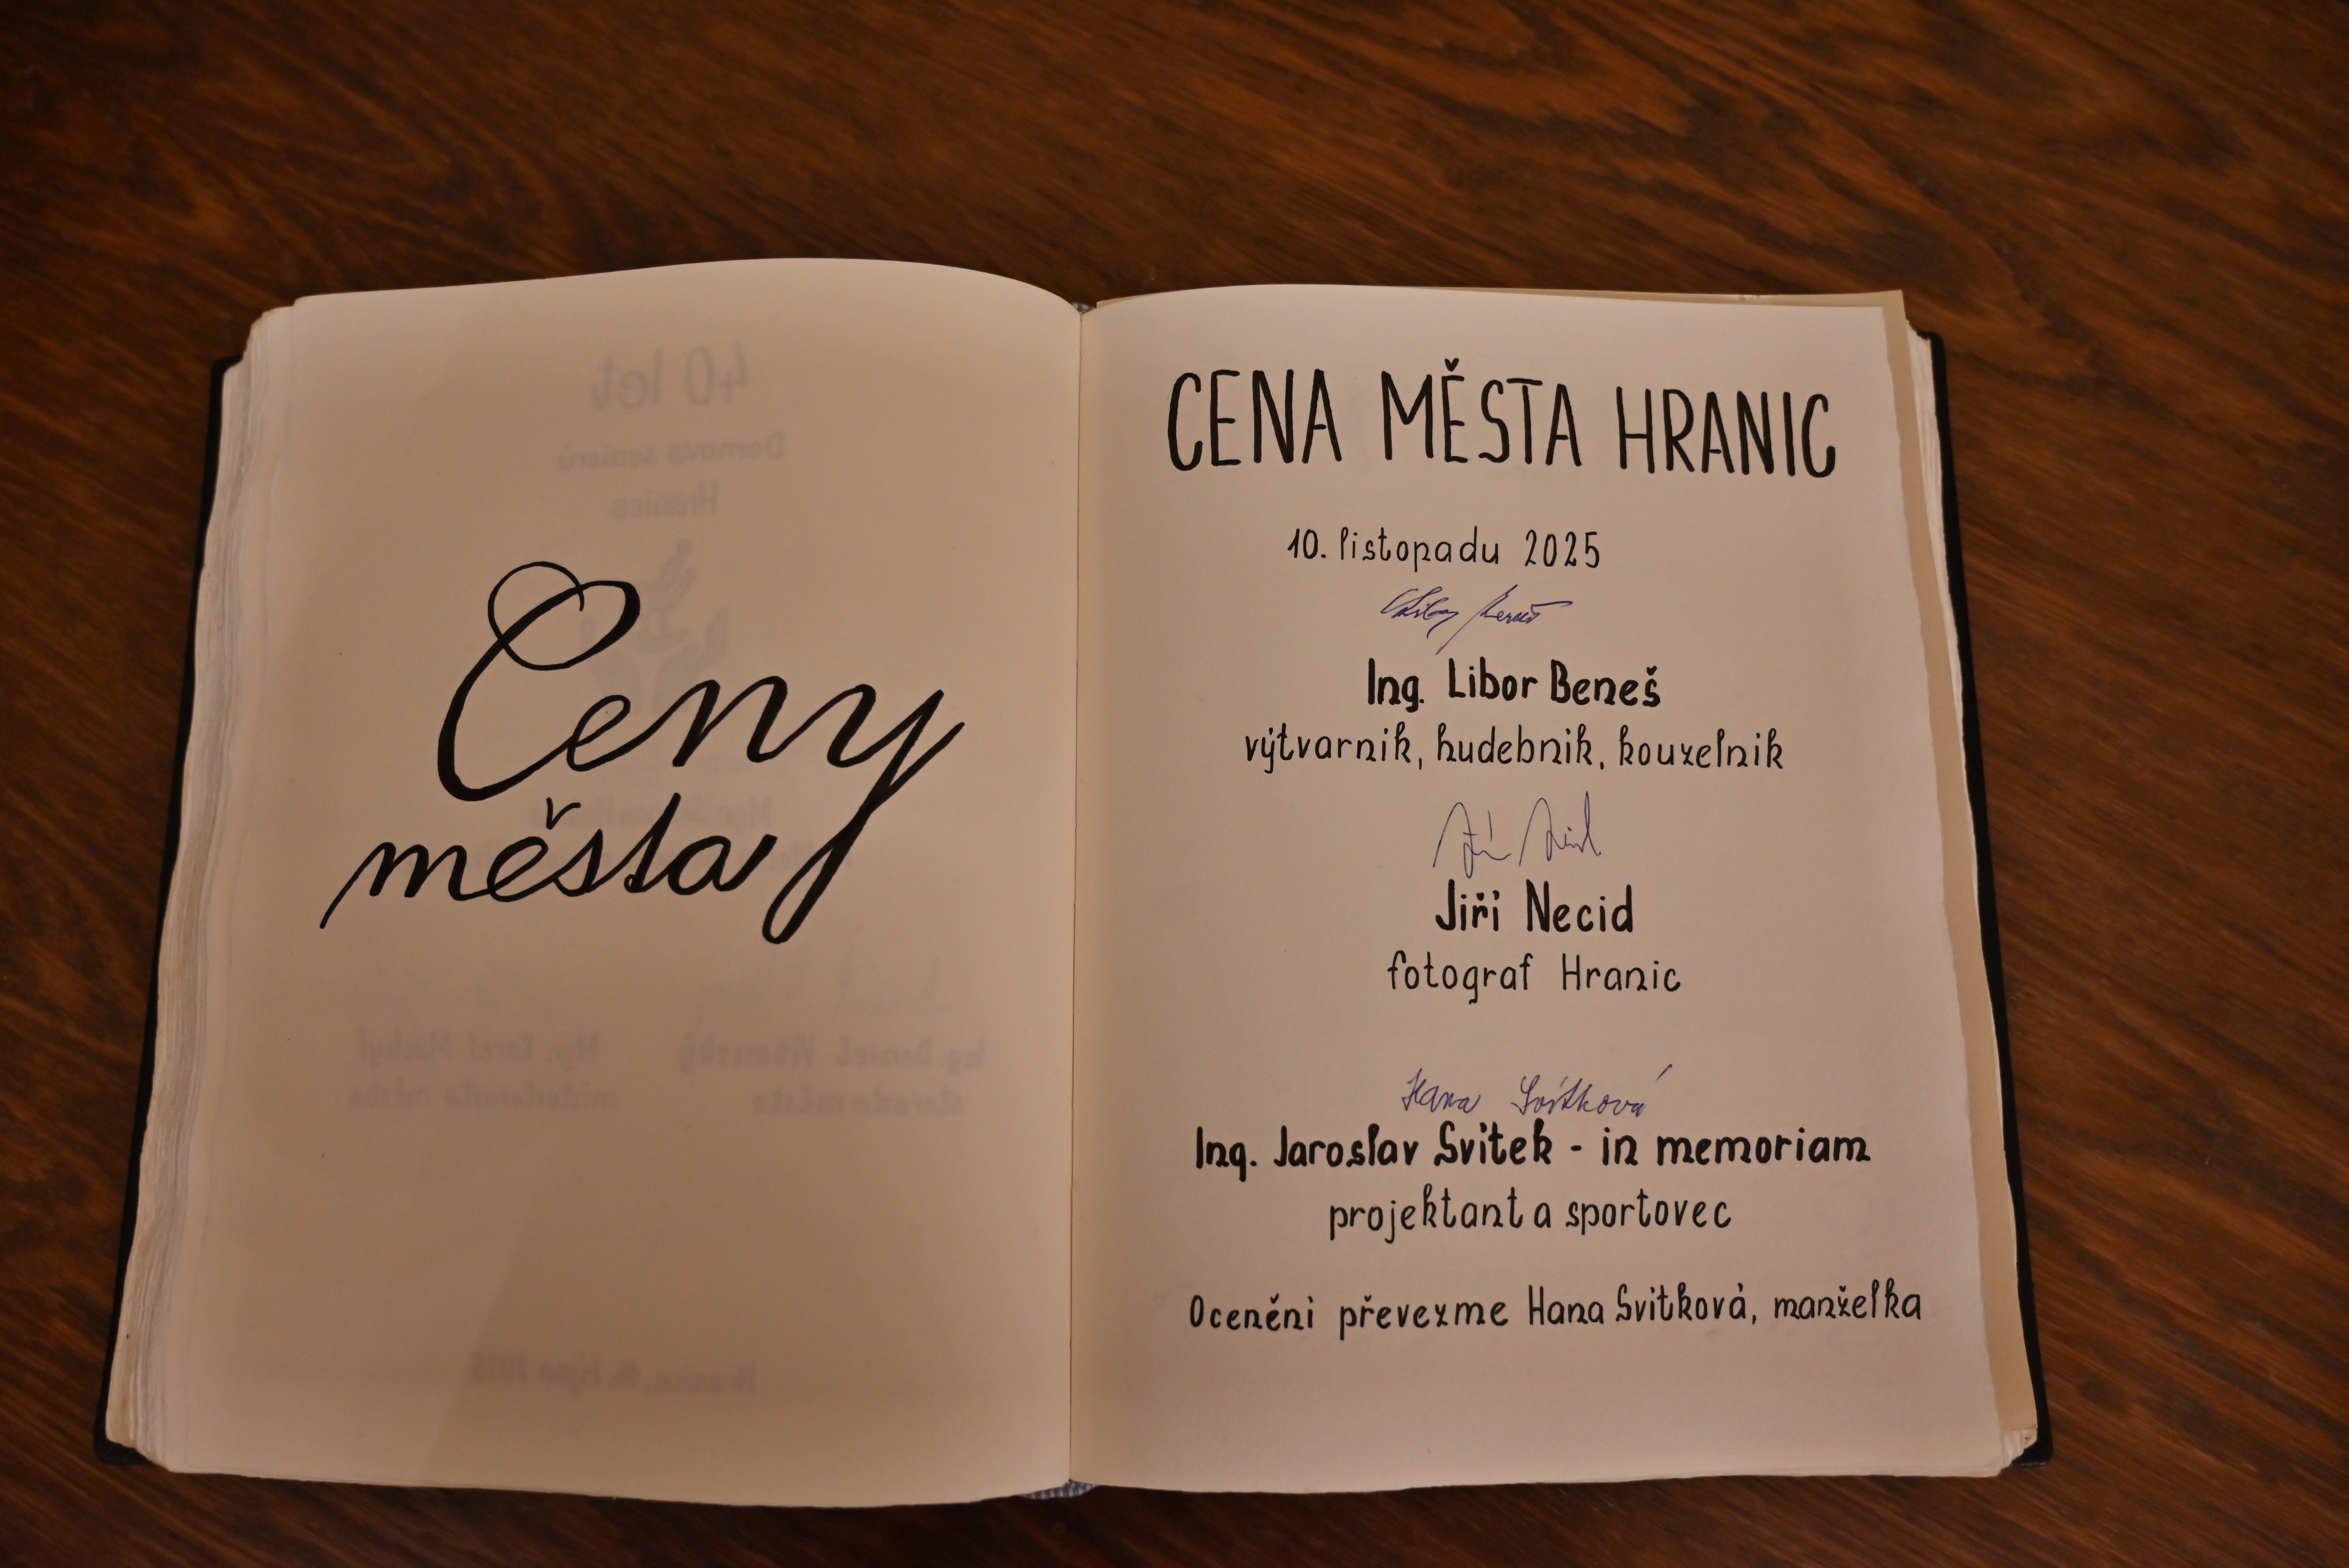 Ceny
města
CENA MĚSTA HRANIC
10. listopadu 2025
Ing. Libor Beneš
výtvarník, hudebník, kouzelník
Jiří Necid
fotograf Hranic
Hana Svítková
Ing. Jaroslav Svítek - in memoriam
projektant a sportovec
Ocenění převezme Hana Svítková, manželka